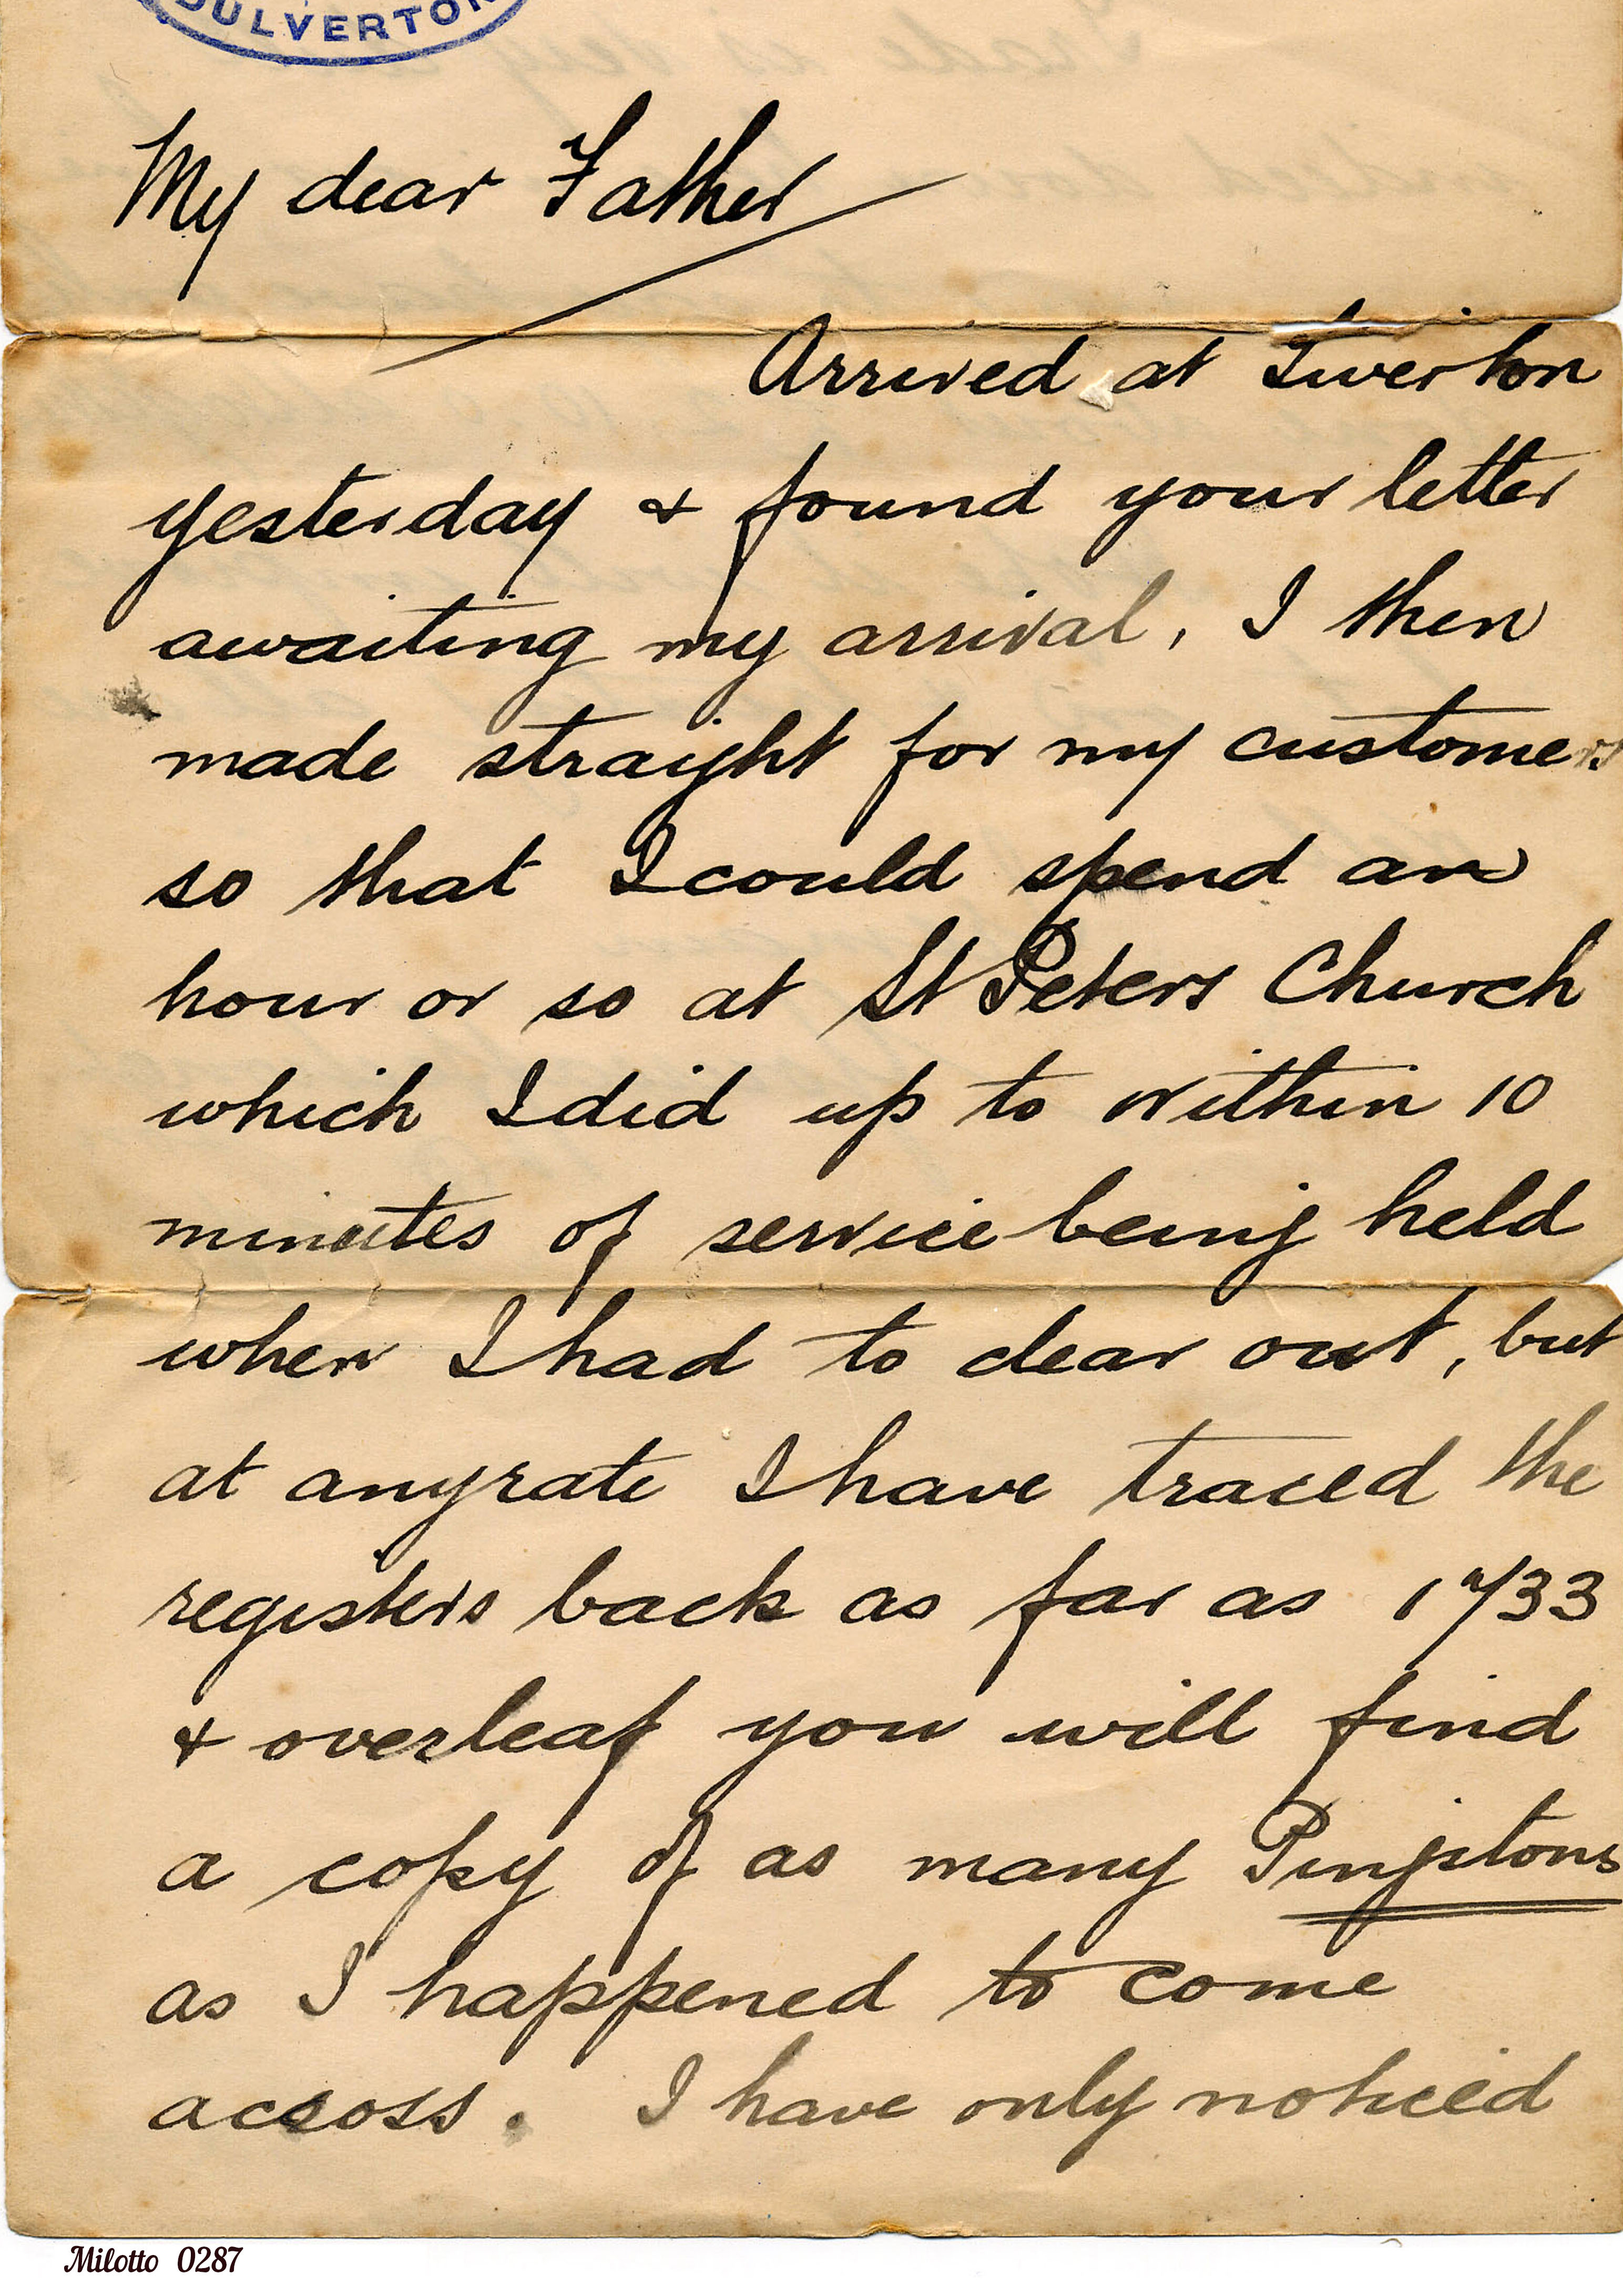 DULVERTON
My dear Father
Arrived at Tiverton
yesterday & found your letter
awaiting my arrival, I then
made straight for my customers
so that I could spend an
hour or so at St Peters Church
which I did up to within 10
minutes of service being held
when I had to clear out, but
at anyrate I have traced the
registers back as far as 1733
& overleaf you will find
a copy of as many Pingstons
as I happened to come
across. I have only noticed
Milotto 0287